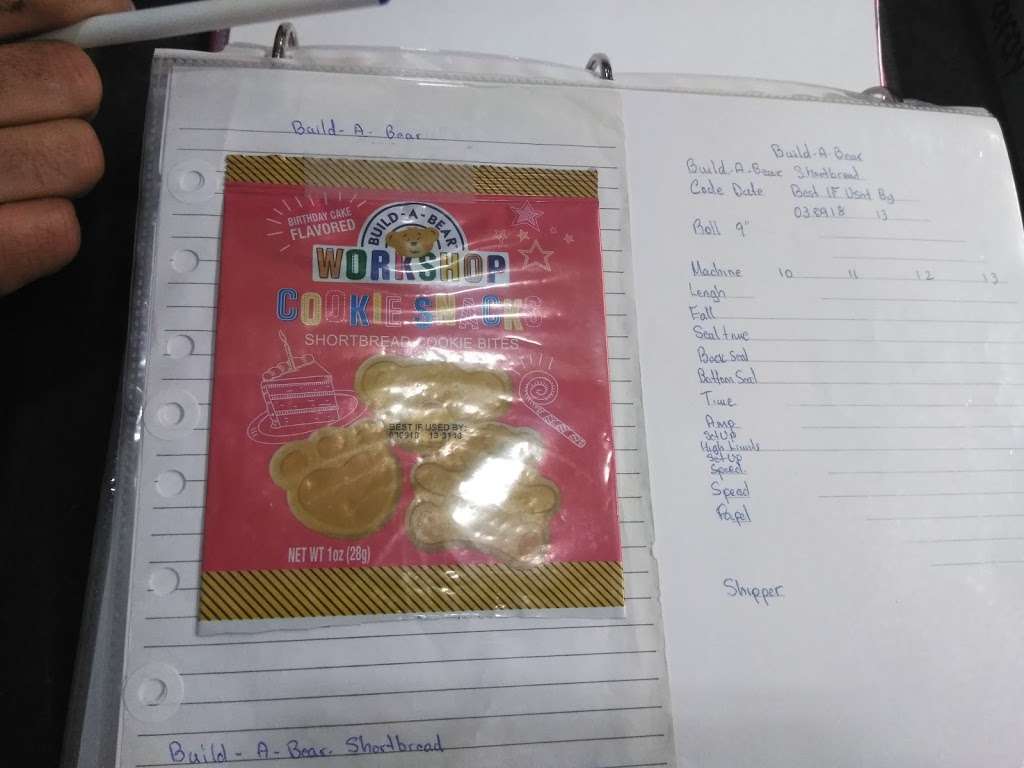 Build-A-Bear
BIRTHDAY CAKE
FLAVORED
BUILD-A-BEAR
WORKSHOP
COOKIE SNACKS
SHORTBREAD COOKIE BITES
BEST IF USED BY:
NET WT 1oz (28g)
Build-A-Bear Shortbread
Build-A-Bear
Build-A-Bear Shortbread
Code Date Best IF Used By
030918 13
Roll 9"
Machine 10 11 12 13
Lengh
Fall
Seal time
Back Seal
Bottom Seal
Time
Amp
SetUp
High Limits
SetUp
Speed
Speed
Papel
Shipper